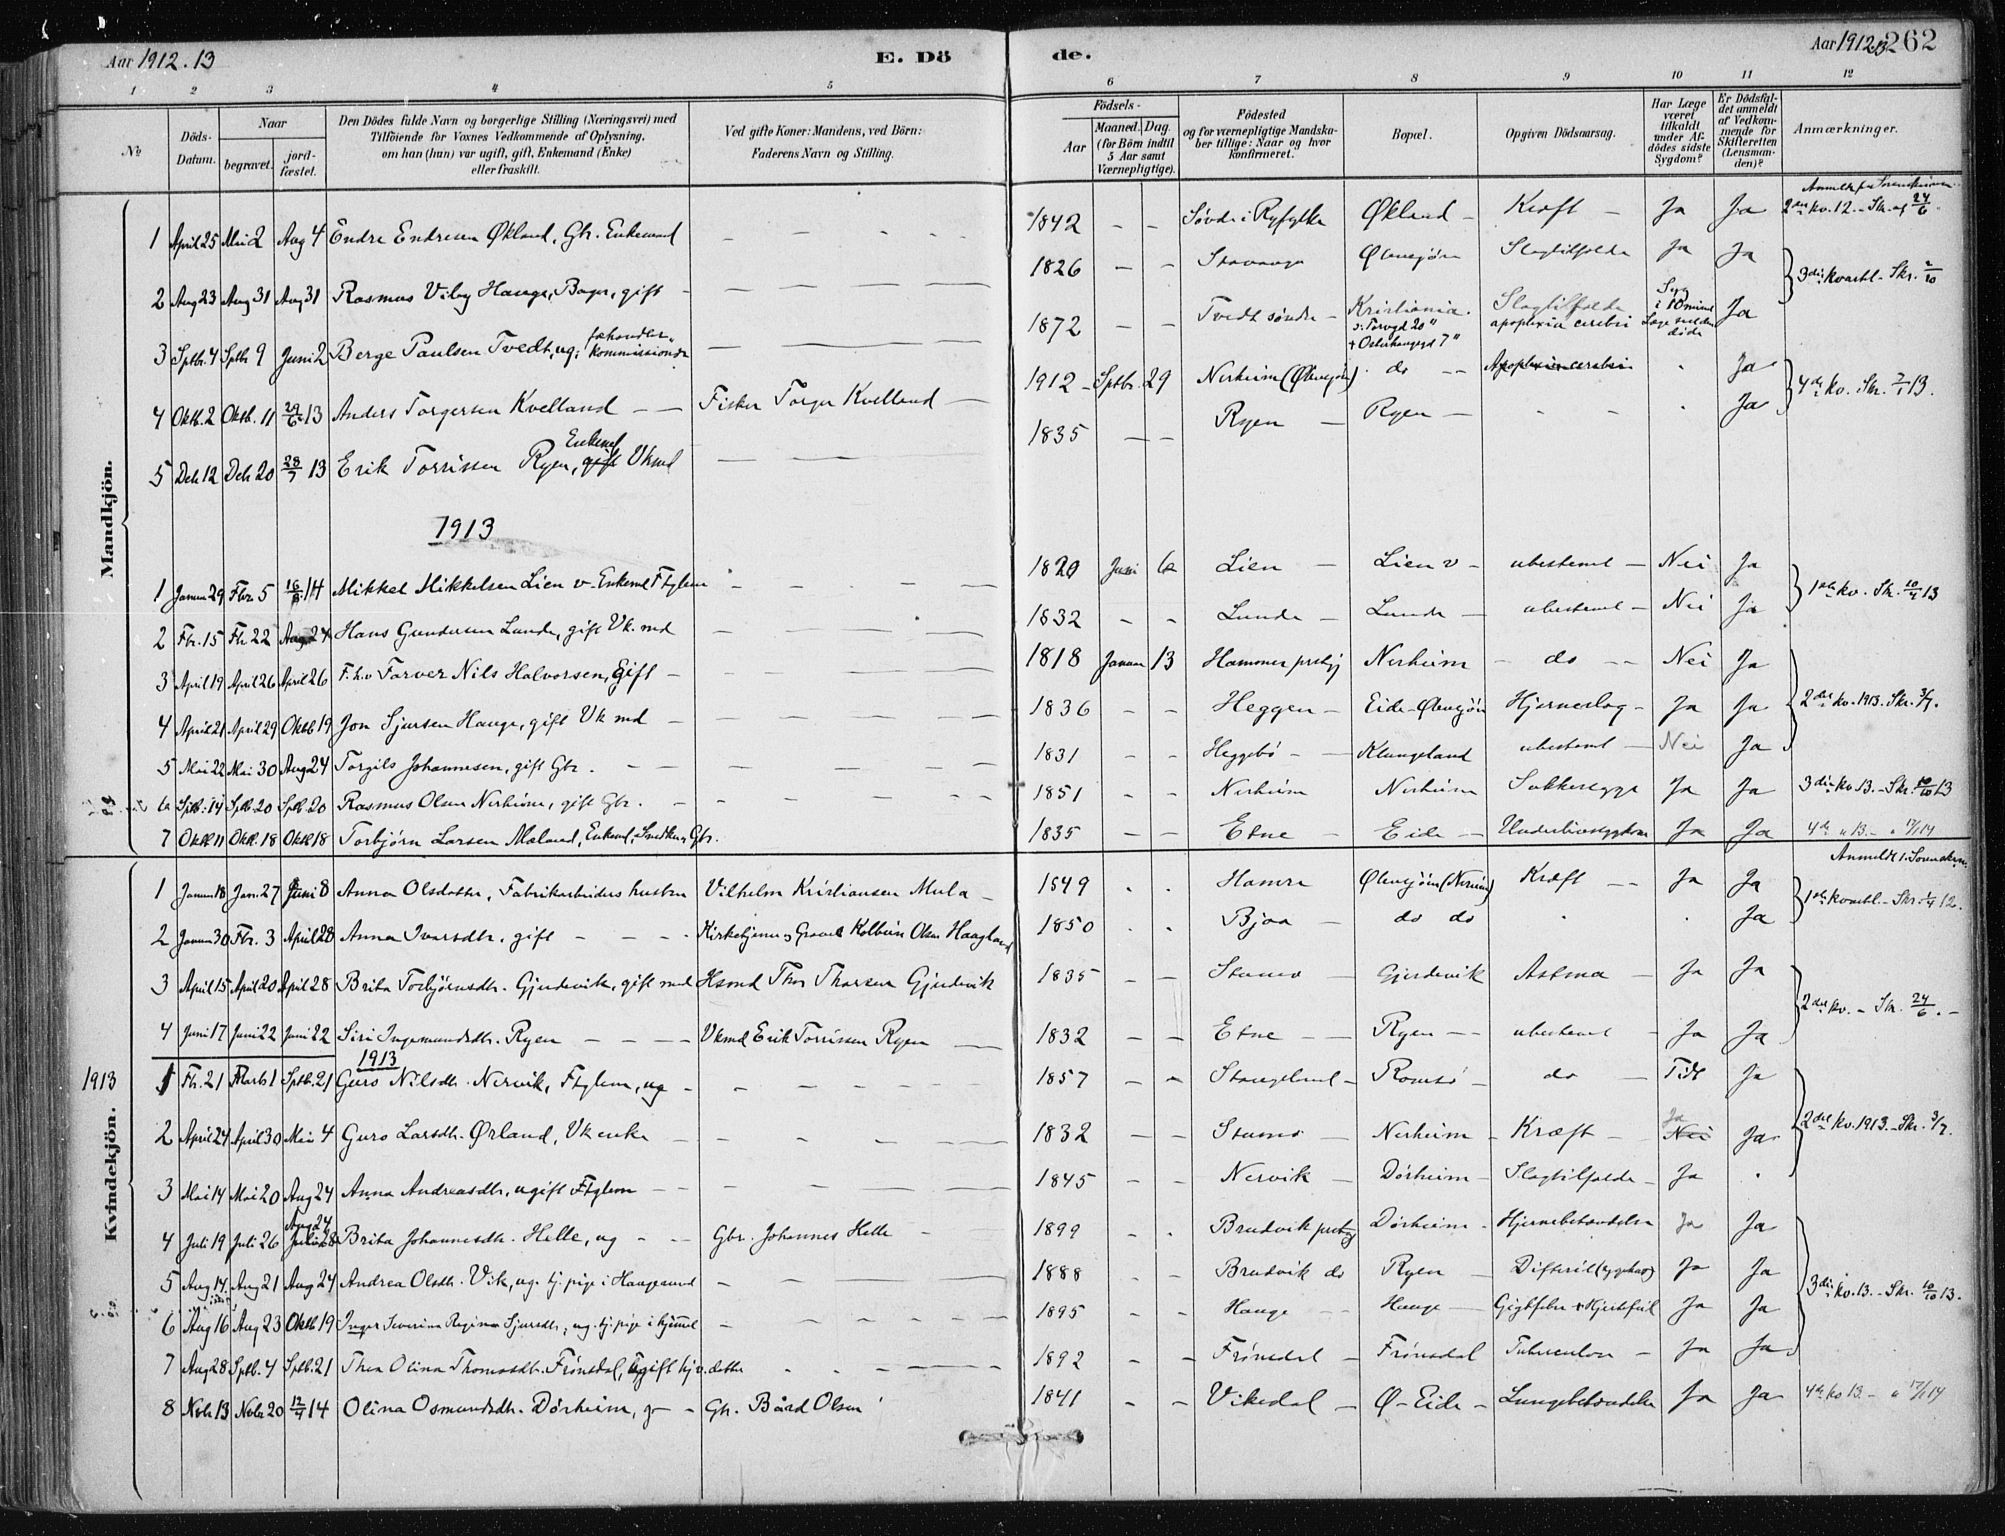 Aar 1912.13 E. Dö de. Aar 1912.13 262
1 2 3 4 5 6 7 8 9 10 11 12
No
Döds-Datum.
Naar
begravet.
jordfæstet.
Den Dödes fulde Navn og borgerlige Stilling (Næringsvei) med
Tilföiende for Voxnes Vedkommende af Oplysning,
om han (hun) var ugift, gift, Enkemand (Enke)
eller fraskilt.
Ved gifte Koner: Mandens, ved Börn:
Faderens Navn og Stilling.
Födsels-
Aar
Maaned. Dag.
(for Börn indtil
5 Aar samt
Værnepligtige).
Födested
og for værnepligtige Mandskaber
tillige: Naar og hvor
konfirmeret.
Bopæl.
Opgiven Dödsaarsag.
Har Læge
været
tilkaldt
under Afdödes
sidste
Sygdom?
Er Dödsfaldet
anmeldt
af Vedkommende
for
Skifteretten
(Lensmanden)?
Anmærkninger.
Mandkjön.
1 April 25 Mai 2 Aug 4 Endre Endresen Økland, Gbr. Enkemand 1842 - - Søvde i Ryfylke Økland Kræft Ja Ja 2det kv. 12. - Skr. af 24/6.
2 Aug 23 Aug 31 Aug 31 Rasmus Viby Hauge, Bager, gift 1826 - - Stavanger Ølensjøen Slagtilfælde Ja Ja 3die kvartl - Skr. 2/10
3 Sptb. 4 Sptb 9 Juni 2 Berge Paulsen Tvedt, ug. kommissionær 1872 - - Tvedt søndre Kristiania Slagtilfælde apoplexia cerebri Ja
4 Oktb. 2 Oktb. 11 29/6 13 Anders Torgersen Kvelland Fisker Torger Kvelland 1912 Septbr. 29 Nerheim (Ølensjøen) do Apoplexia cerebri Ja 4de kv. Skr. 7/1 13.
5 Dcb 12 Dcb 20 28/7 13 Erik Torrissen Ryen, gift Enkemd Vkmd 1835 - - Ryen Ryen - - Ja
1913
1 Januar 29 Fbr. 5 14 Mikkel Mikkelsen Lien v. Enkemd Ftglem 1820 Juni 6 Lien Lien v ubestemt Nei Ja 1ste kv. Skr. 10/4 13
2 Fbr. 15 Fbr 22 Aug 24 Hans Gundersen Lunde, gift Vk.md 1832 - - Lunde Lunde ubestemt Nei Ja
3 April 19 April 26 April 26 F.h.v Farver Nils Halvorsen, Gift 1818 Januar 13 Hammer prstgj Nerheim do Nei Ja
4 April 21 April 29 Oktb 19 Jon Sjursen Hauge, gift Vk md 1836 - - Heggen Eide-Ølensjøen Hjerneslag Ja Ja 2det kv. 1913. Skr. 3/7.
5 Mai 22 Mai 30 Aug 24 Torgils Johannesen, gift Gbr. 1831 - - Heggebø Klungeland ubestemt Nei Ja
6 Sptb. 14 Sptb 20 Sptb. 20 Rasmus Olsen Nerheim, gift Gbr. 1851 - - Nerheim Nerheim Sukkersyge Ja Ja 3die kv 13. - Skr. 10/10 13
7 Oktb 11 Oktb. 18 Oktb 18 Torbjørn Larsen Mæland, Enkemd, Gbr. 1835 - - Etne Eide Underlivssygdom Ja Ja 4de " 13. - " 17/1 14
Kvindekjön.
1 Januar 18 Jan. 27 Juni 8 Anna Olsdatter, Fabrikarbeiders hustru Vilhelm Kristiansen Mula 1849 Hamre Ølensjøen (Nerheim) Kræft Ja Ja 1ste kvartl - Skr. 1/4 12.
2 Januar 30 Fbr. 3 April 28 Anna Ivarsdtr. gift Kirketjener og Graver Kolbein Olsen Haagland 1850 Bjoa do do Ja
3 April 15 April 20 April 28 Brita Torbjørnsdtr. Gjerdevik, gift med Hsmd Thor Thorsen Gjerdevik 1835 - - Stumo Gjerdevik Astma Ja Ja
4 Juni 17 Juni 22 Juni 22 Siri Ingemundsdtr. Ryen Vkmd Erik Torrissen Ryen 1832 - - Etne Ryen ubestemt Ja Ja 2det kv. - Skr. 24/6. -
1913
1913 1 Fbr. 21 Marts 1 Sptb. 21 Guro Nilsdtr. Nervik, Ftglem, ug 1857 - - Stangeland Romsø do Tidt Ja
2 April 24 April 30 Mai 4 Guro Larsdtr. Ørland, Vk enke 1832 - - Stumo Nerheim Kræft Ja Nei Ja 2det kv. 1913. - Skr. 3/7.
3 Mai 14 Mai 20 Aug 24 Anna Andreasdtr. ugift Ftglem 1845 - - Nervik Dørheim Slagtilfælde Ja
4 Juli 19 Juli 26 Aug 24 Juli 28 Brita Johannesdtr. Helle, ug Gbr. Johannes Helle 1899 Bruvik prstgj Dørheim Hjernebetændelse Ja Ja
5 Aug 14. Aug 21 Aug 24 Andrea Olsdtr. Vik, ug. tj. pige i Haugesund 1888 - - Bruvik do Ryen Difterit (sygehus) Ja Ja 3die kv. 13. - Skr. 10/10 13.
6 Aug 16 Aug 23 Oktb 19 Inger Severine Regina Sjursdtr, ug. tj. pige i hjemmet 1895 - - Hauge Hauge Gigtfeber + Hjertefeil Ja Ja
7 Aug 28 Sptb. 4 Sptb. 21 Thea Olina Thomasdtr. Frønsdal, ugift hjv. datter 1892 - - Frønsdal Frønsdal Tuberculose Ja Ja
8 Novb 13 Novb 20 12/4 14 Olina Osmundsdtr. Dørheim, g Gbr. Bård Olsen 1841 - - Vikedal Ø-Eide Lungebetændelse Ja Ja 4de kv 13. - " 17/1 14